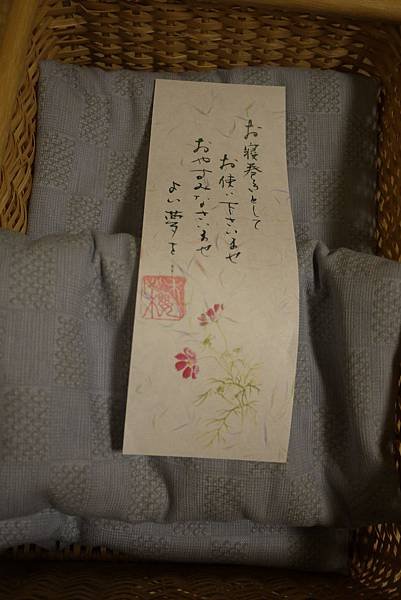 お寝巻きとして
お使い下さいませ
おやすみなさいませ
よい夢を